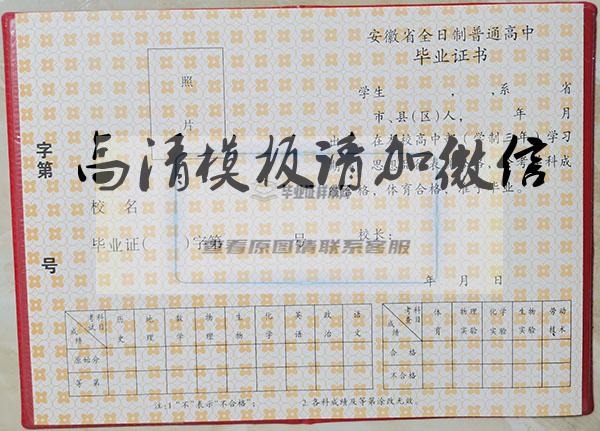 安徽省全日制普通高中
毕业证书
照
片
学生 ， ，系 省
市、县(区)人， 年 月
在 校高中 (学制三年)学习
高清模板请加微信
格，体育合格，准予毕业。
毕业证样本网
字第 号
校 名
毕业证( )字第 号
校长：
查看原图请联系客服
年 月 日
考试科目 成绩 历史 地理 数学 物理 生物 化学 英语 政治 语文
原始分
等 第
考查科目 成绩 体育 物理实验 化学实验 生物实验 劳动技术
合 格
不合格
注:1.“不”表示“不合格”； 2.各科成绩及等第涂改无效。